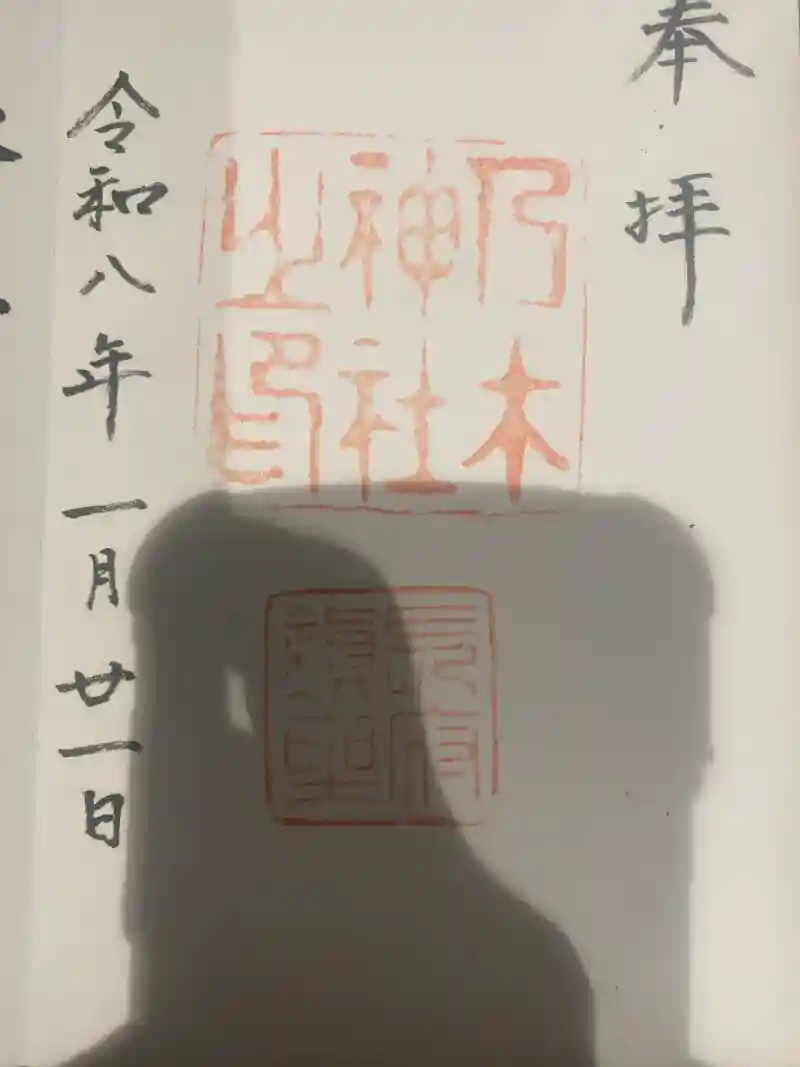 奉拝
乃木
神社
之印
長府
鎮
令和八年一月廿一日